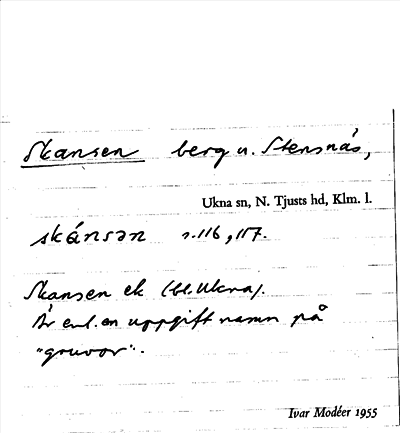 Skansen berg n. Stensnäs,
Ukna sn, N. Tjusts hd, Klm. l.
skánsən s. 116, 117.
Skansen ek (bl. Ukna).
Är enl. en uppgift namn på
"gruvor".
Ivar Modéer 1955